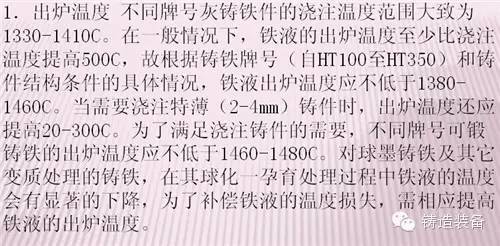 1．出炉温度 不同牌号灰铸铁件的浇注温度范围大致为
1330-1410C。在一般情况下，铁液的出炉温度至少比浇注
温度提高500C，故根据铸铁牌号（自HT100至HT350）和铸
件结构条件的具体情况，铁液出炉温度应不低于1380-
1460C。当需要浇注特薄（2-4mm）铸件时，出炉温度还应
提高20-300C。为了满足浇注铸件的需要，不同牌号可锻
铸铁的出炉温度应不低于1460-1480C。对球墨铸铁及其它
变质处理的铸铁，在其球化一孕育处理过程中铁液的温度
会有显著的下降，为了补偿铁液的温度损失，需相应提高
铁液的出炉温度。
铸造装备